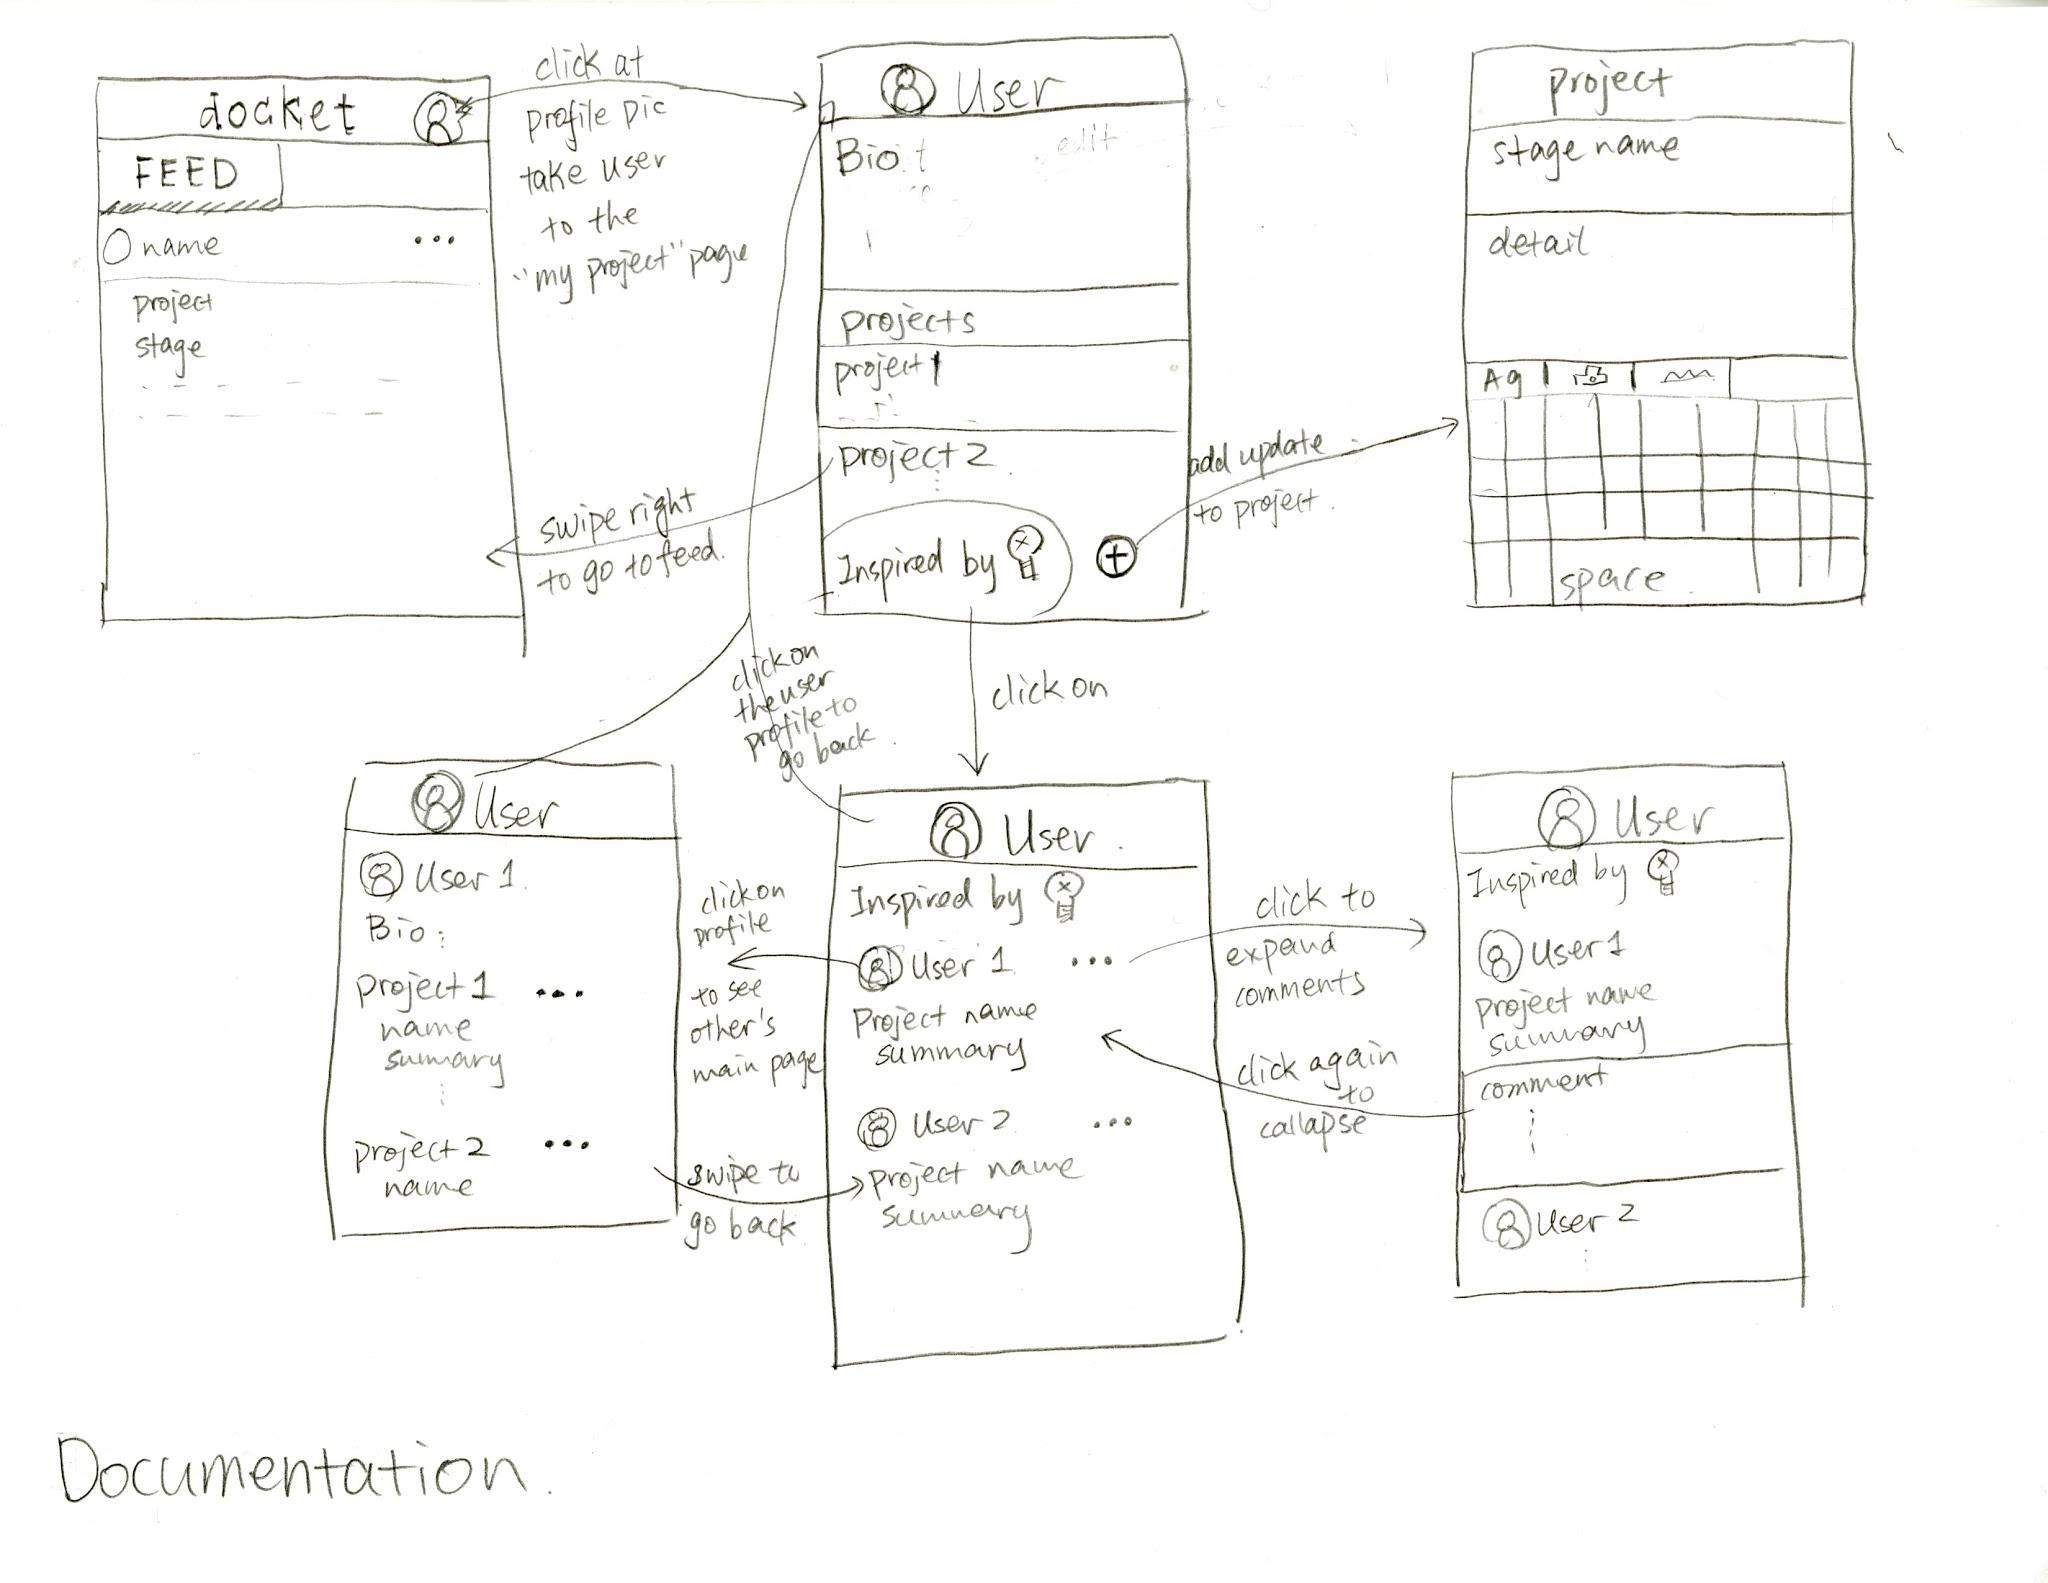 docket
FEED
name
...
project
stage
click at
profile pic
take user
to the
"my project" page
User
Bio
edit
projects
project 1
project 2
Inspired by
+
swipe right
to go to feed.
add update
to project.
project
stage name
detail
Ag
space
click on
the user
profile to
go back
click on
User
User 1
Bio :
project 1 ...
name
summary
project 2 ...
name
click on
profile
to see
other's
main page
swipe to
go back
User
Inspired by
User 1 ...
Project name
summary
User 2 ...
project name
summary
click to
expand
comments
click again
to
callapse
User
Inspired by
User 1
project name
summary
comment
User 2
Documentation.